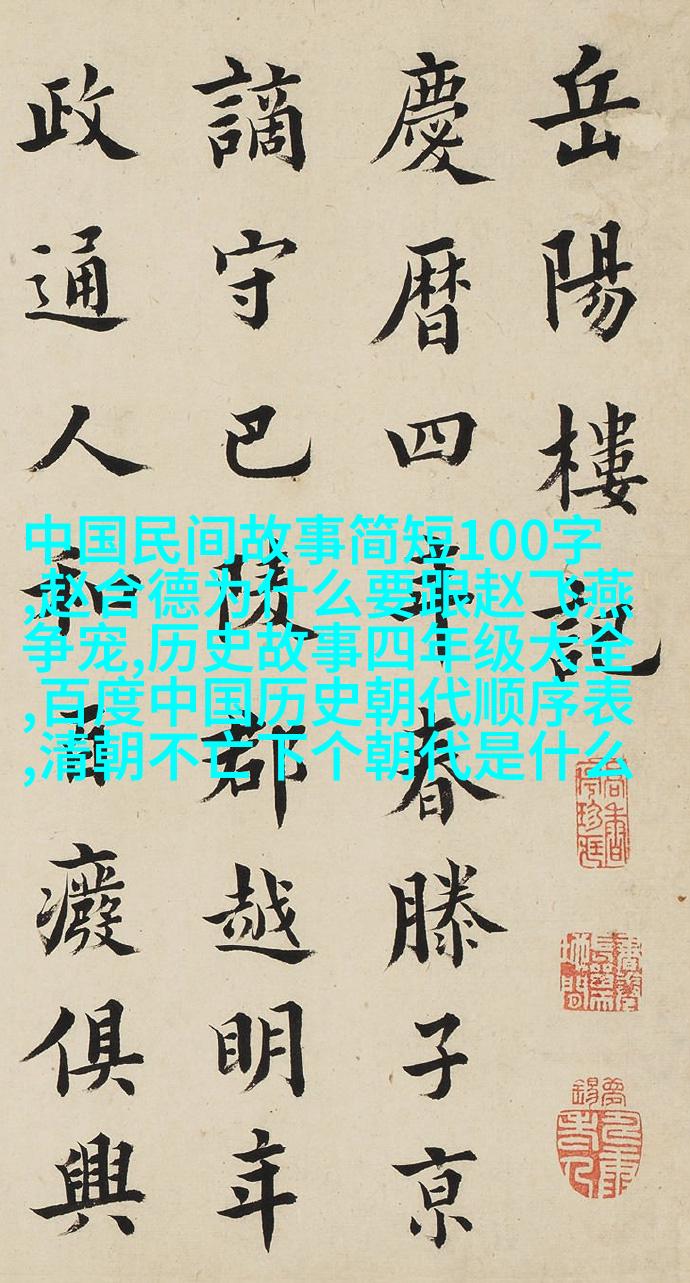 岳陽樓記
慶曆四年春滕子亰
謫守巴陵郡越明年
政通人和百癈俱興
中国民间故事简短100字
,赵合德为什么要跟赵飞燕
争宠,历史故事四年级大全
,百度中国历史朝代顺序表
,清朝不亡下个朝代是什么